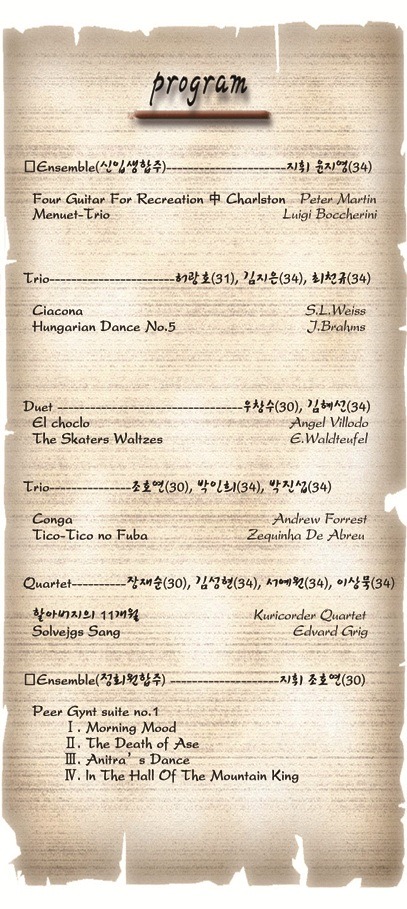 program
□Ensemble(신입생합주)----------------------지휘 윤지영(34)
Four Guitar For Recreation 中 Charlston Peter Martin
Menuet-Trio Luigi Boccherini
Trio-----------------------허랑호(31), 김지은(34), 최천규(34)
Ciacona S.L.Weiss
Hungarian Dance No.5 J.Brahms
Duet ----------------------------------우창수(30), 김혜선(34)
El choclo Angel Villodo
The Skaters Waltzes E.Waldteufel
Trio---------------조호연(30), 박인희(34), 박진섭(34)
Conga Andrew Forrest
Tico-Tico no Fuba Zequinha De Abreu
Quartet----------장재순(30), 김성현(34), 서예원(34), 이상묵(34)
할아버지의 11개월 Kuricorder Quartet
Solvejgs Sang Edvard Grig
□Ensemble(정회원합주) --------------------지휘 조호연(30)
Peer Gynt suite no.1
Ⅰ. Morning Mood
Ⅱ. The Death of Ase
Ⅲ. Anitra’s Dance
Ⅳ. In The Hall Of The Mountain King